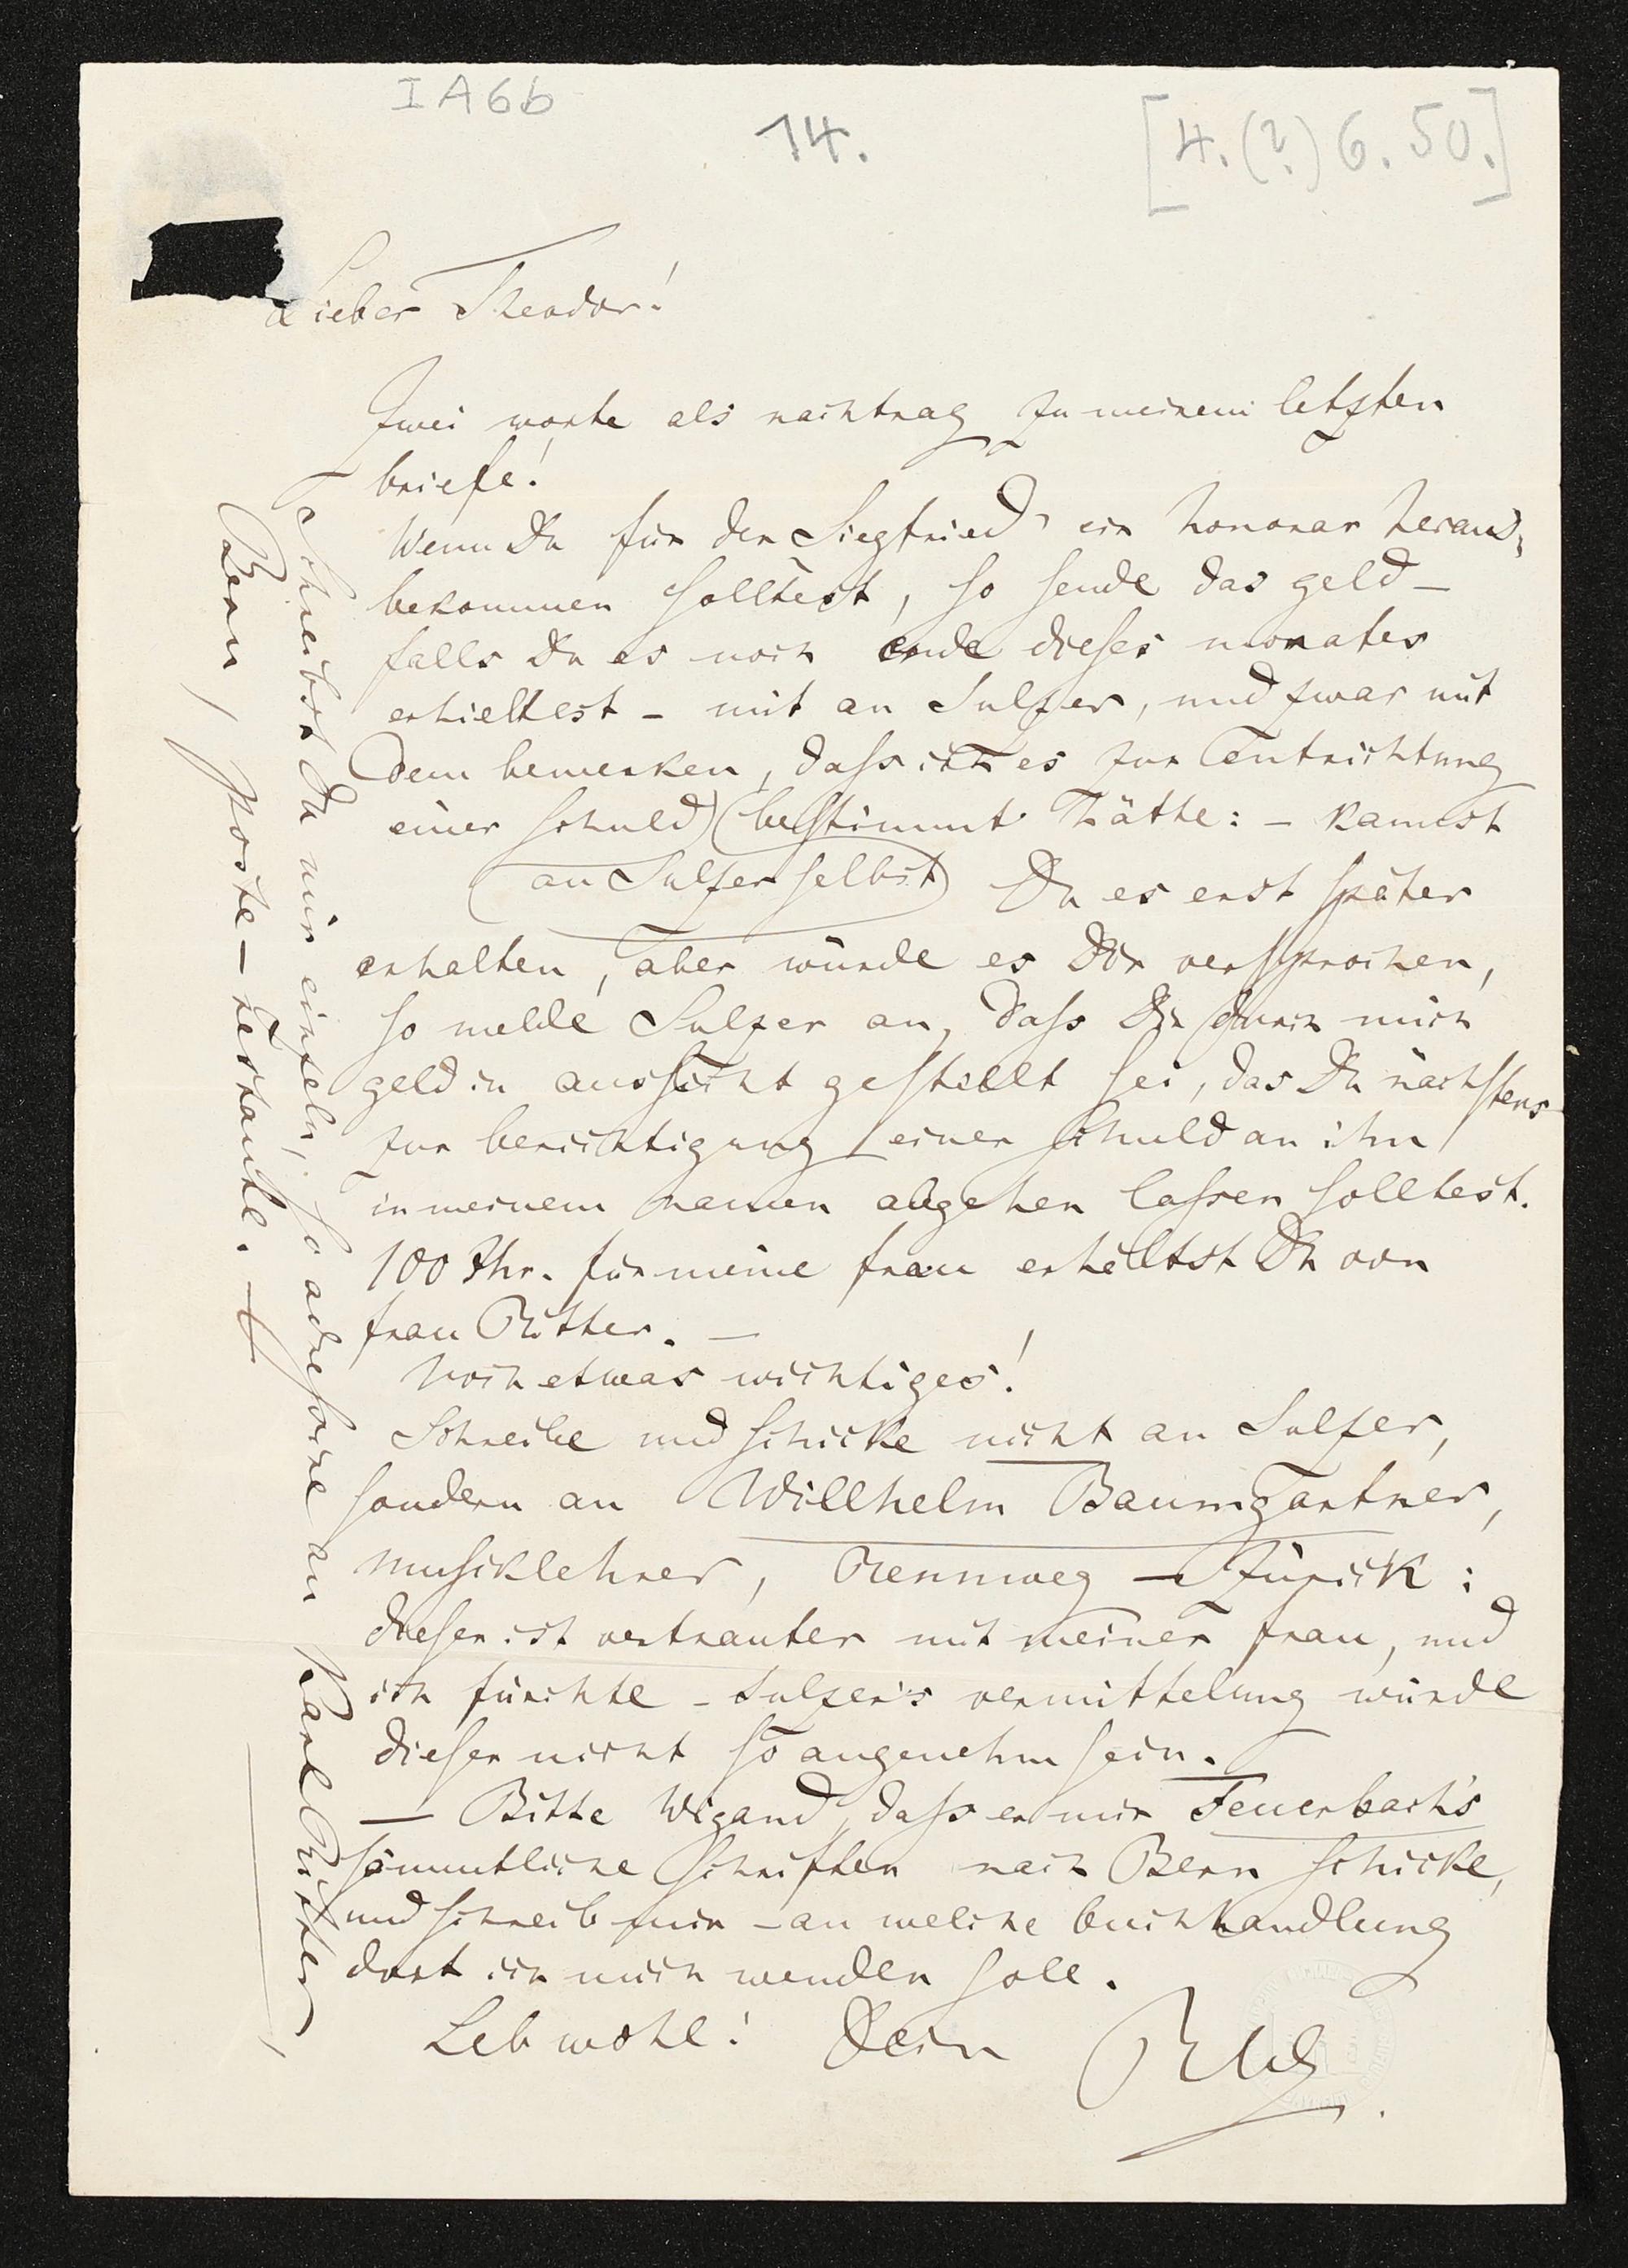 I A 6b
14.
[4. (?) 6. 50.]
Lieber Theodor!
Zwei worte als nachtrag zu meinem letzten
briefe!
Wenn Du für den Siegfried ein honorar heraus-
bekommen solltest, so sende das geld –
falls Du es noch ende dieses monates
erhieltest – mit an Sulzer, und zwar mit
dem bemerken, daß ich es zur entrichtung
einer schuld (bestimmt hätte: – kannst
(an Sulzer selbst) Du es erst später
erhalten, aber würde es Dir versprochen,
so melde Sulzer an, daß Dir durch mich
geld in aussicht gestellt sei, das Du nächstens
zur berichtigung einer schuld an ihn
in meinem namen abgehen lassen solltest.
100 Thr. für meine frau erhältst Du von
frau Ritter. –
Noch etwas wichtiges!
Schreibe und schicke nicht an Sulzer,
sondern an Willhelm Baumgartner,
musiklehrer, Rennweg – Zürich:
dieser ist vertrauter mit meiner frau, und
ich fürchte – Sulzer's vermittelung würde
dieser nicht so angenehm sein.
– Bitte Wigand, daß er mir Feuerbach's
sämmtliche schriften nach Bern schicke,
und schreib mir – an welche buchhandlung
dort ich mich wenden soll.
Leb wohl! Dein RW.
Schreibst Du mir einzeln, so adressire an Karl Ritter,
Bern, poste-restante.